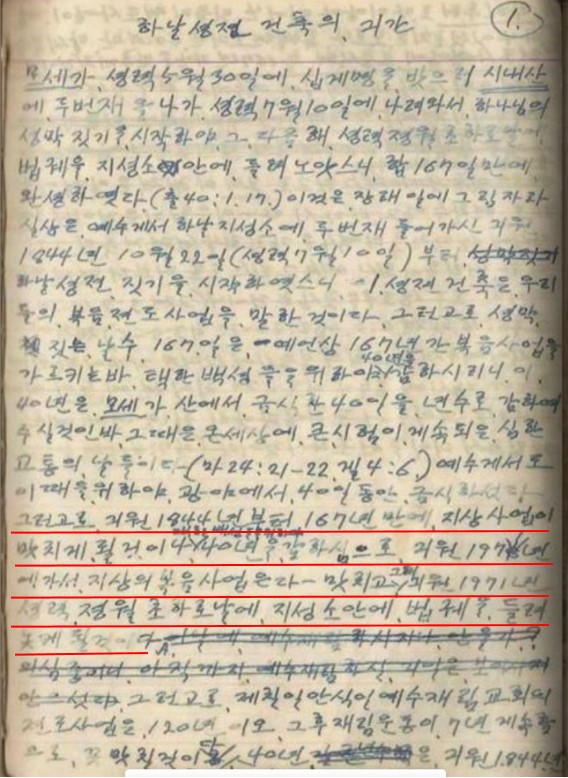 하날성전 건축의 기간
1.
모세가, 성력 5월 30일에, 십계명을 받으러 시내산
에, 두번재 올나가 성력 7월 10일에 나려와서, 하나님의
성막 짓기를 시작하야, 그 다음 해, 성력 정월 초하로날에,
법궤를, 지성소안에, 들려 노앗스니, 합 167일만에,
완성하엿다. (출 40:1.17.) 이것은 장래 일에 그림자라
실상은, 예수게서 하날 지성소에, 두번재 들어가신 긔원
1844년 10월 22일 (성력 7월 10일) 부터, 성막짓기
하날 성전, 짓기을, 시작하엿스니 이 성전 건축은 우리
들의, 복음 전도사업을, 말한 것이다. 그런고로 성막,
짓는, 날수, 167일은, 예언상 167년간 복음사업을
가르키는바, 택한 백성들을 위하야 40년을 감하시리니 이,
40년은, 모세가 산에서, 금식한 40일을 년수로, 감하여
주실것인바, 그때은 온세상에, 큰 시험이 계속되은, 심한
고통의, 날들이다- (마 24:21-22, 겔 4:6.) 예수게서도
이때를 위하야, 광야에서, 40일 동안, 금식하섯다.
그런고로, 긔원 1844년 부터, 167년 만에, 지상사업이
맛치게, 될것이나 40년을 감하심으로, 긔원 197 년
에 가서, 지상의 복음사업은 다- 맛치고, 그해 긔원 1971년
성력, 정월 초하로날에, 지성소안에, 법궤을, 들려
놓게 될것이다.
안으섯다. 그런고로, 제칠일안식일예수재림교회의
전도사업은, 120년이오, 그후 재림운동이, 7년 계속함
으로, 끗 맛칠것이다 40년, 은, 긔원 1844년